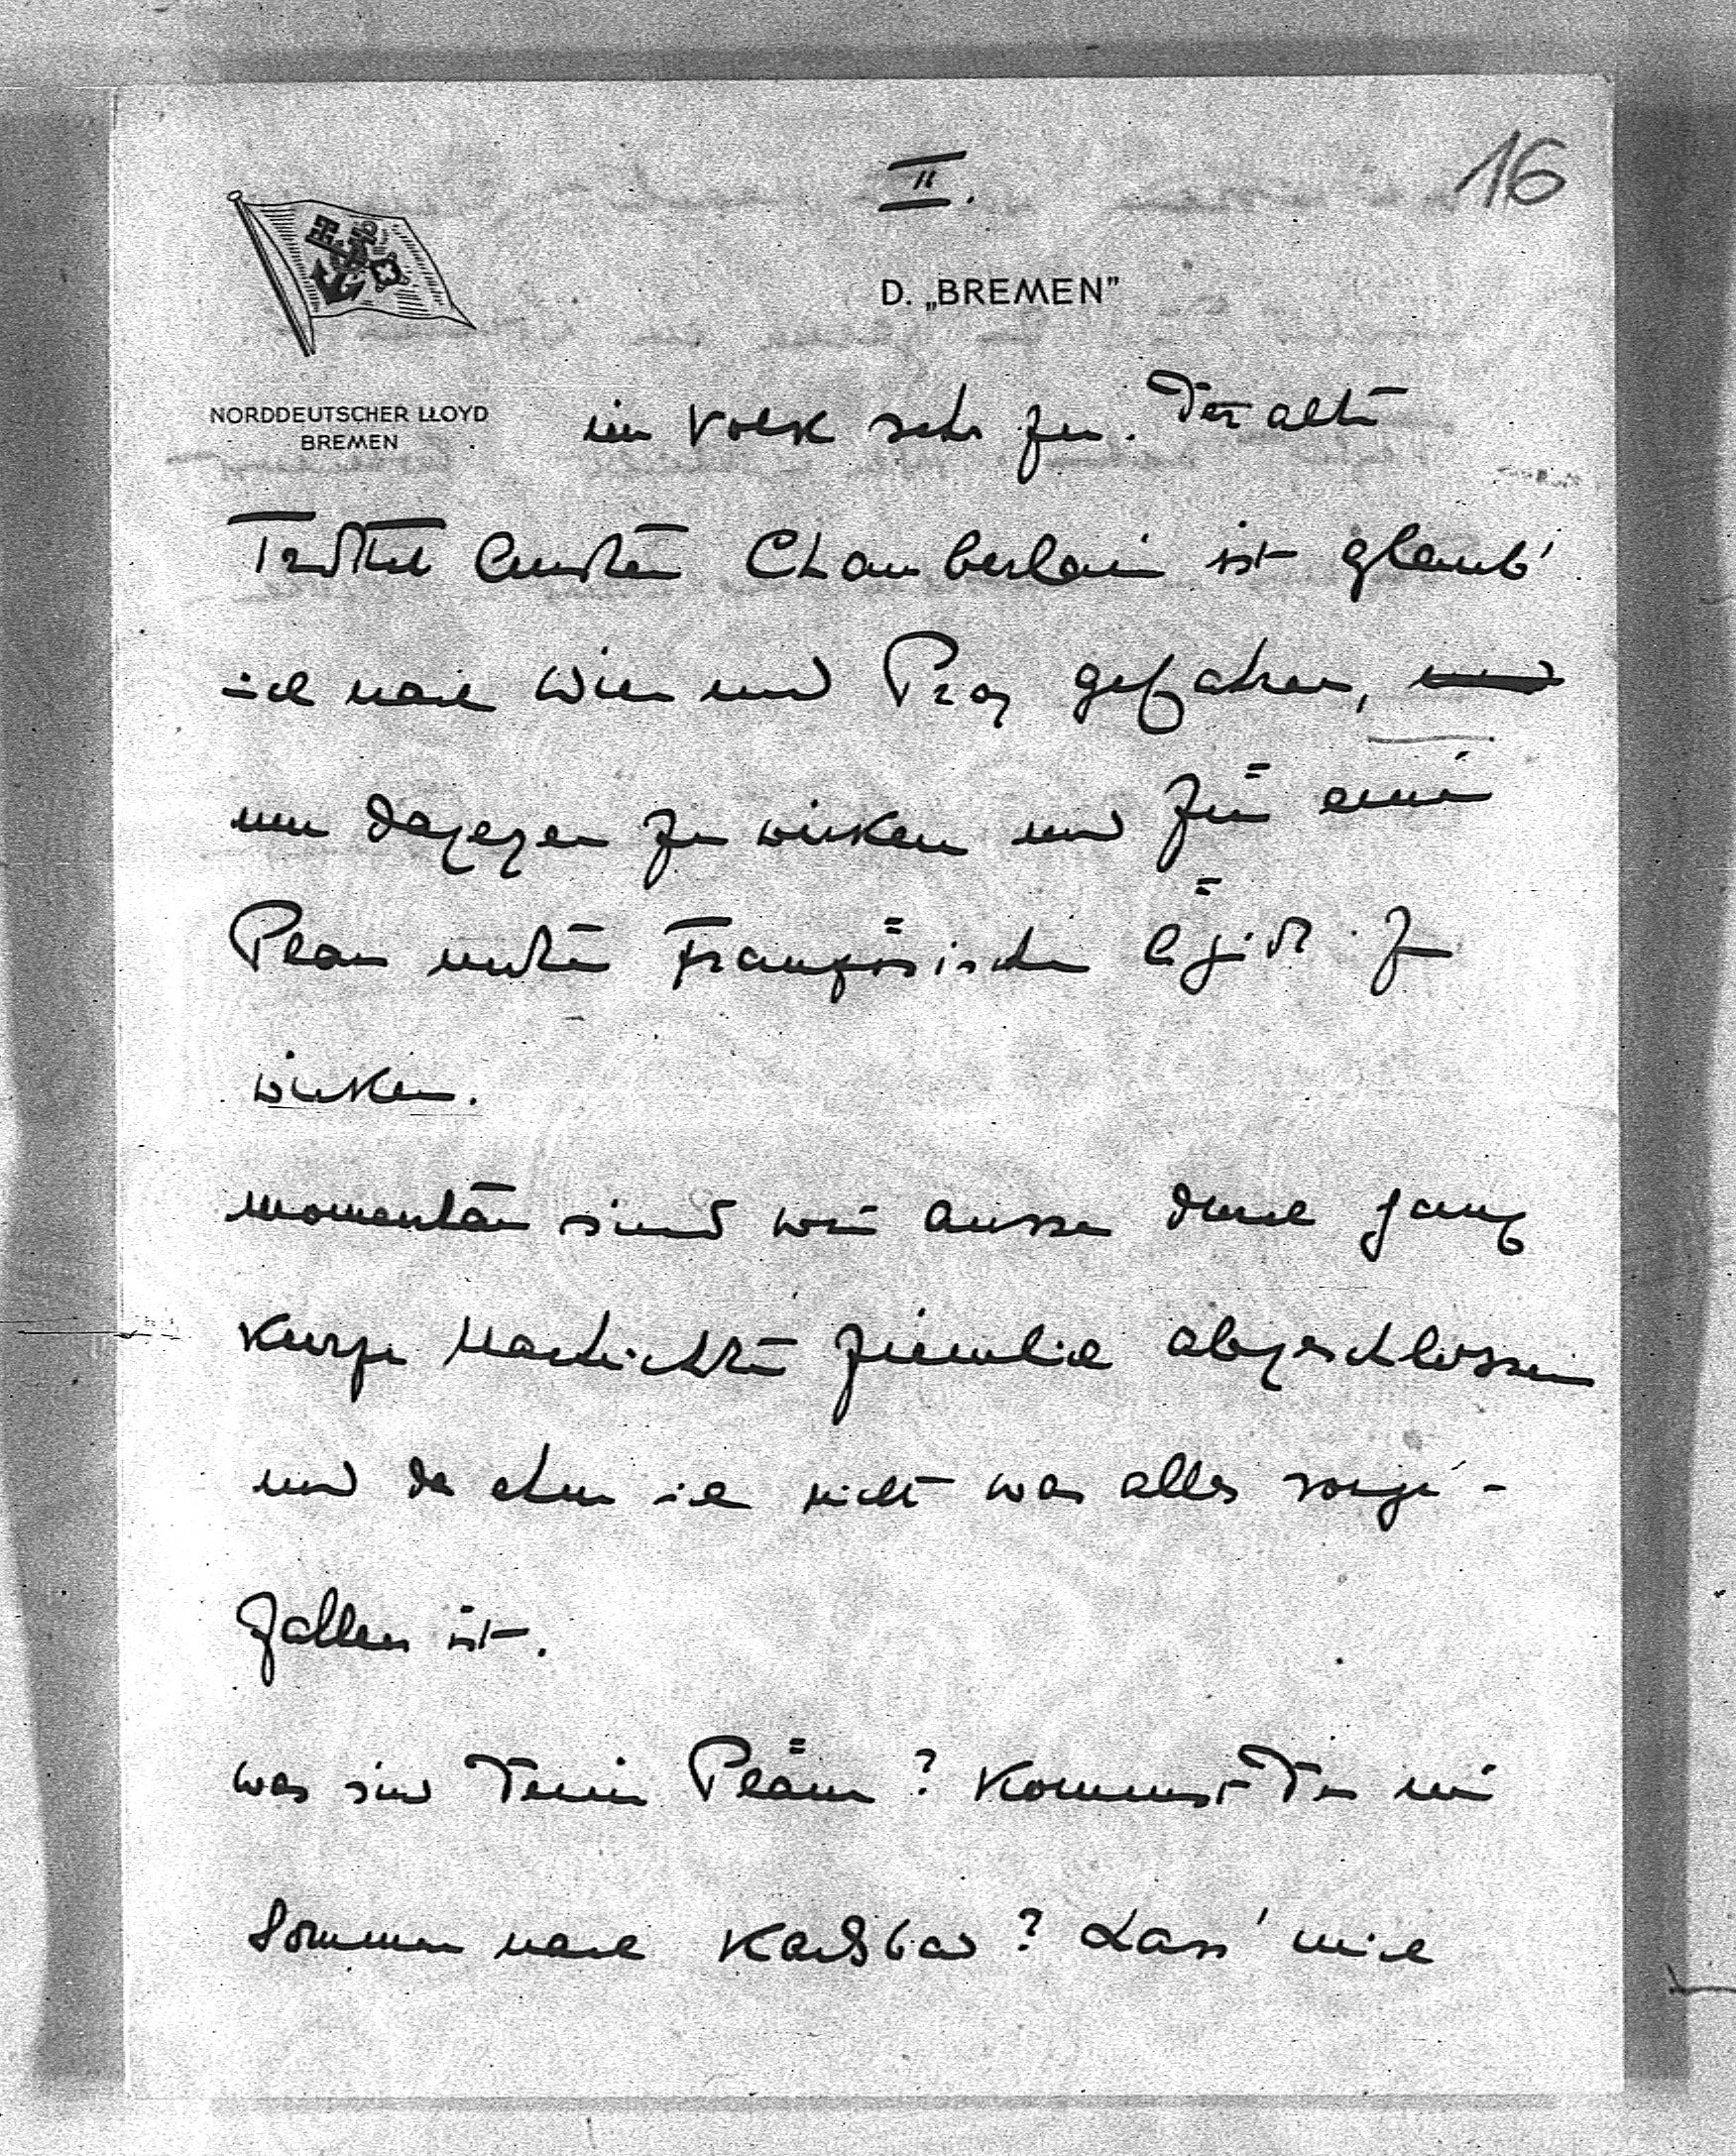 16
II.
D. „BREMEN"
NORDDEUTSCHER LLOYD
BREMEN
im Volk sehr zu. Der alte
Trottel Austen Chamberlain ist glaub'
ich nach Wien und Prag gefahren, und
um dagegen zu wirken und für einen
Plan unter Französischer Ägide zu
wirken.
momentan sind wir ausser durch ganz
kurze Nachrichten ziemlich abgeschlossen
und da ahne ich nicht was alles vorge-
fallen ist.
was sind Deine Pläne? Kommst Du im
Sommer nach Karlsbad? Lass' mich